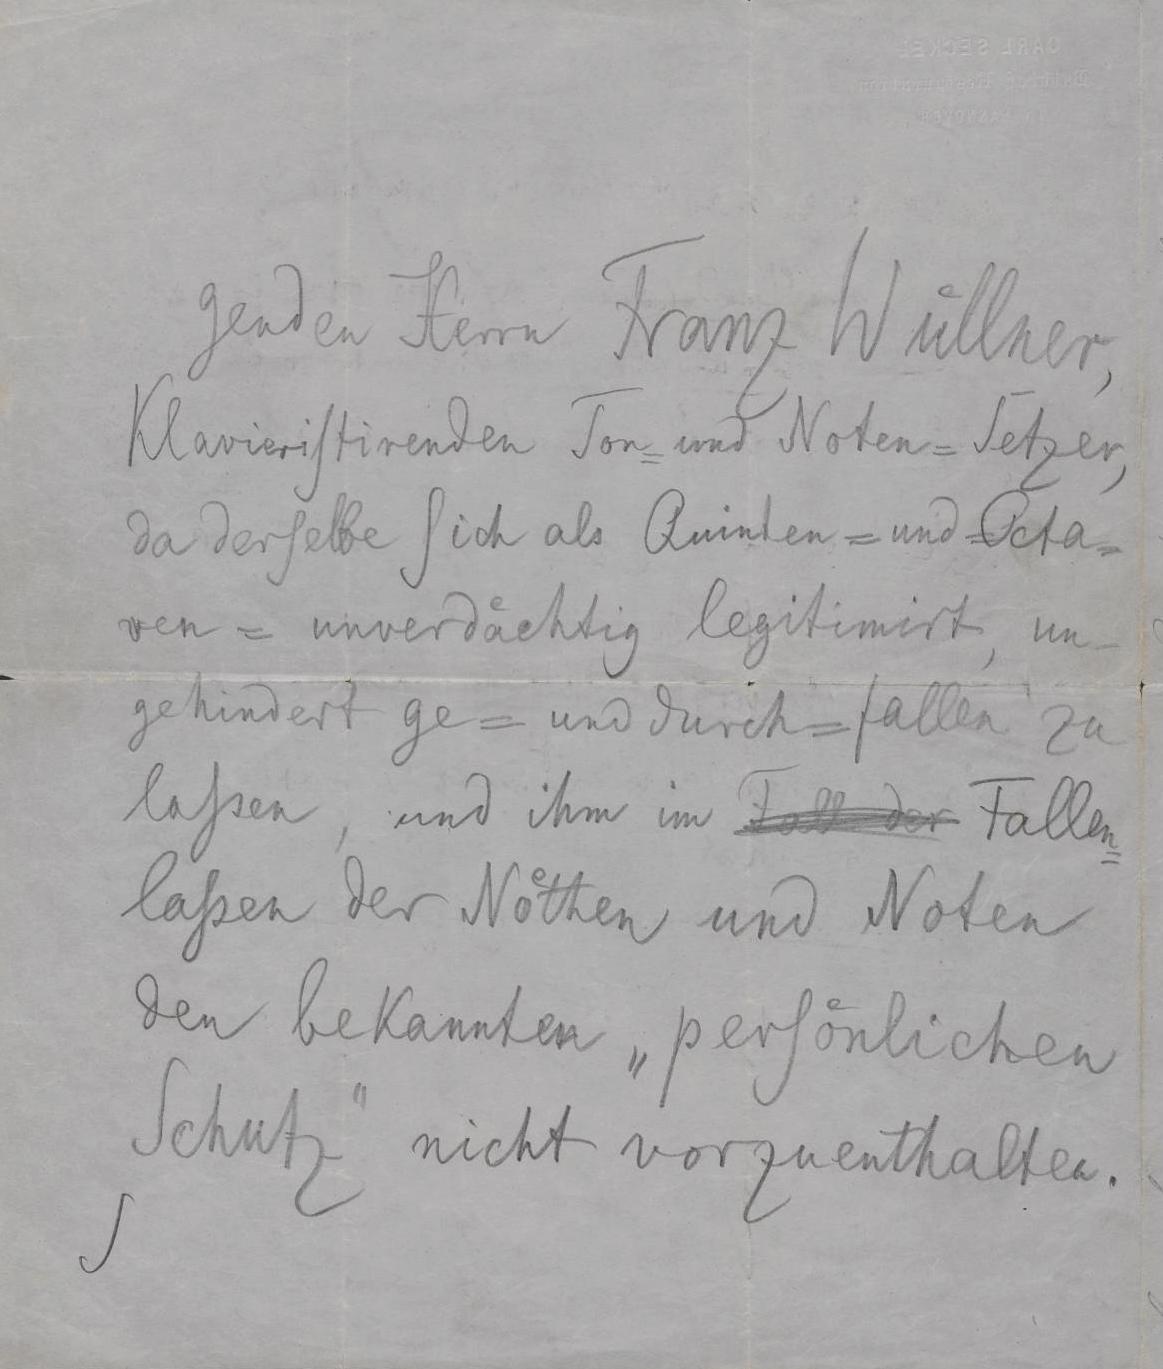 CARL SECKEL
HANNOVER
genden Herrn Franz Wüllner,
Klavieristirenden Ton= und Noten=Setzer,
da derselbe sich als Quinten=und=Octa=
ven = unverdächtig legitimirt, un-
gehindert ge= und durch=fallen zu
laßen, und ihm im Fall der Fallen=
laßen der Nöthen und Noten
den bekannten „persönlichen
Schutz" nicht vorzuenthalten.